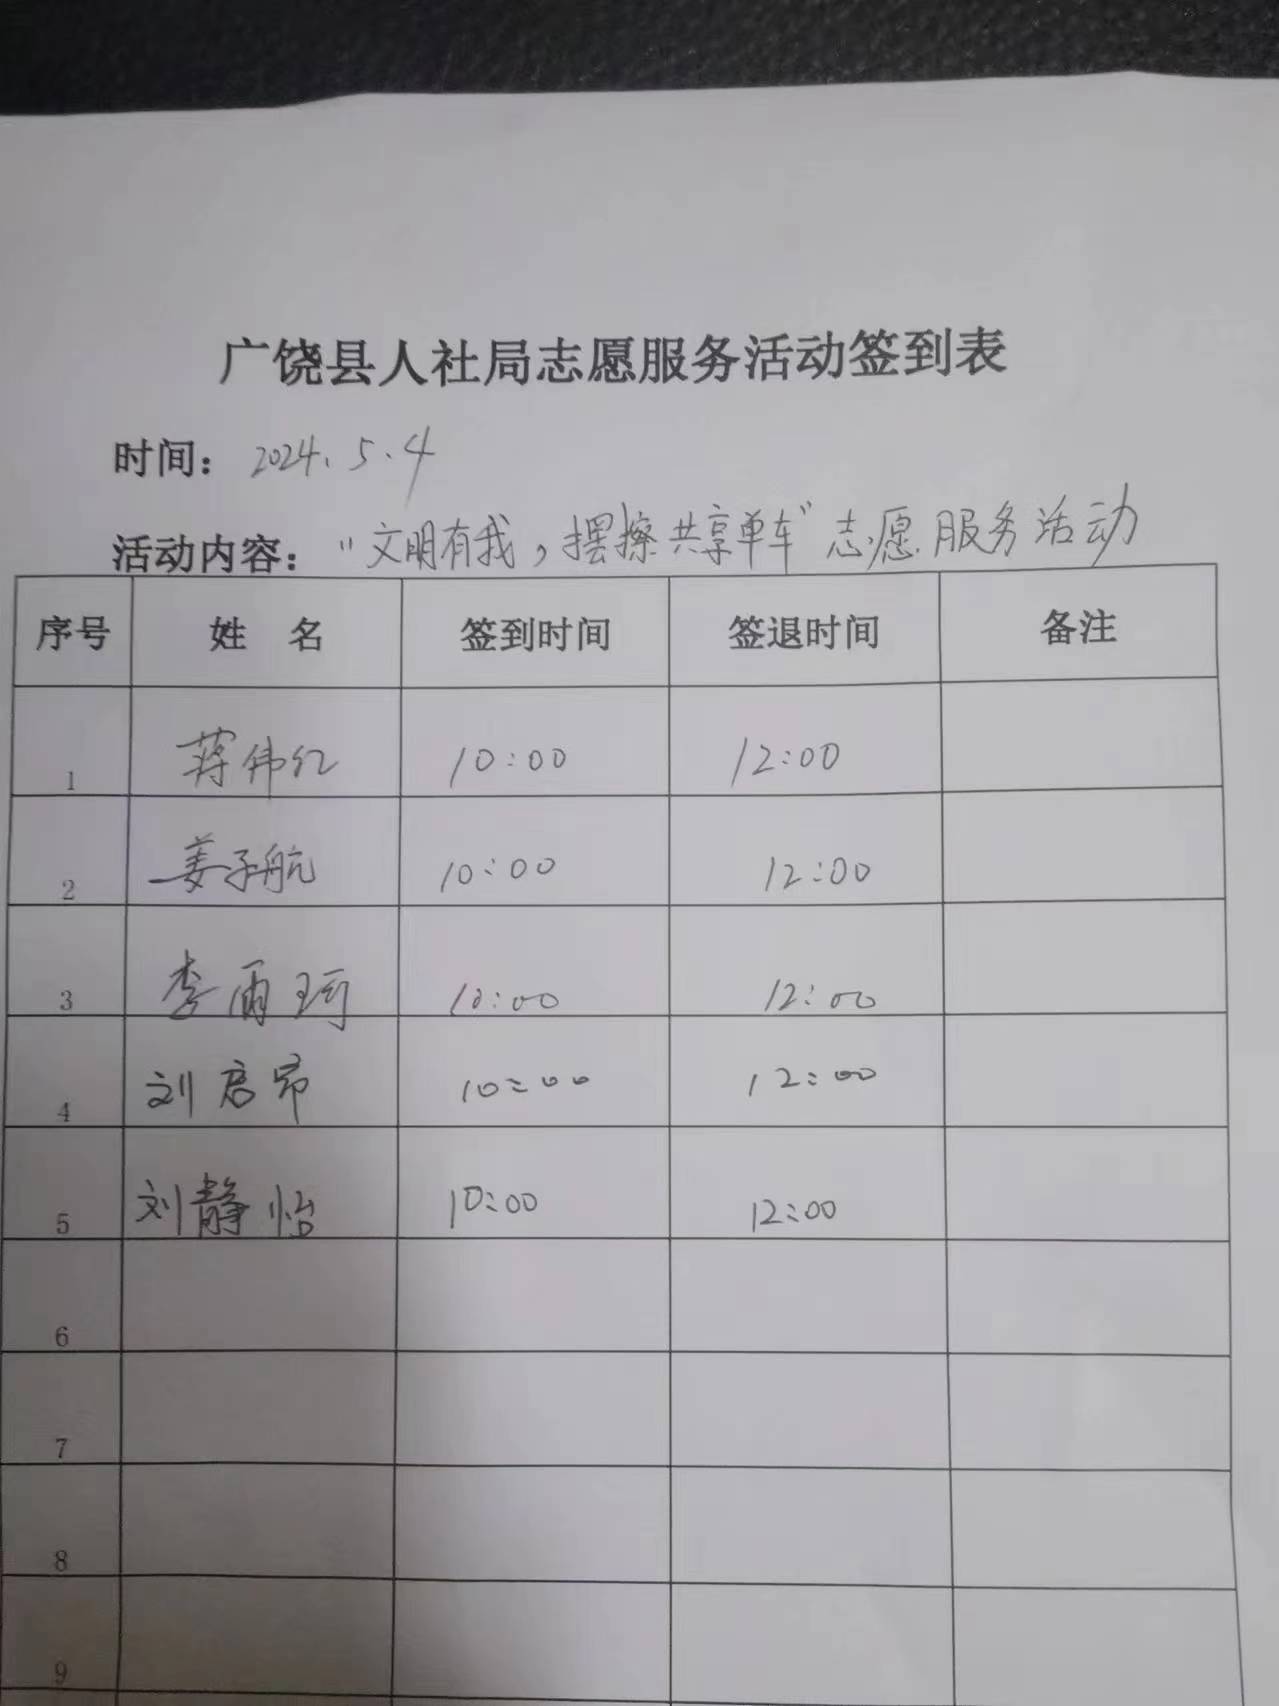 广饶县人社局志愿服务活动签到表
时间：2024.5.4
活动内容：“文明有我，摆擦共享单车”志愿服务活动
序号 姓 名 签到时间 签退时间 备注
1 蒋伟红 10:00 12:00
2 姜子航 10:00 12:00
3 李雨琦 10:00 12:00
4 刘启昂 10:00 12:00
5 刘静怡 10:00 12:00
6
7
8
9